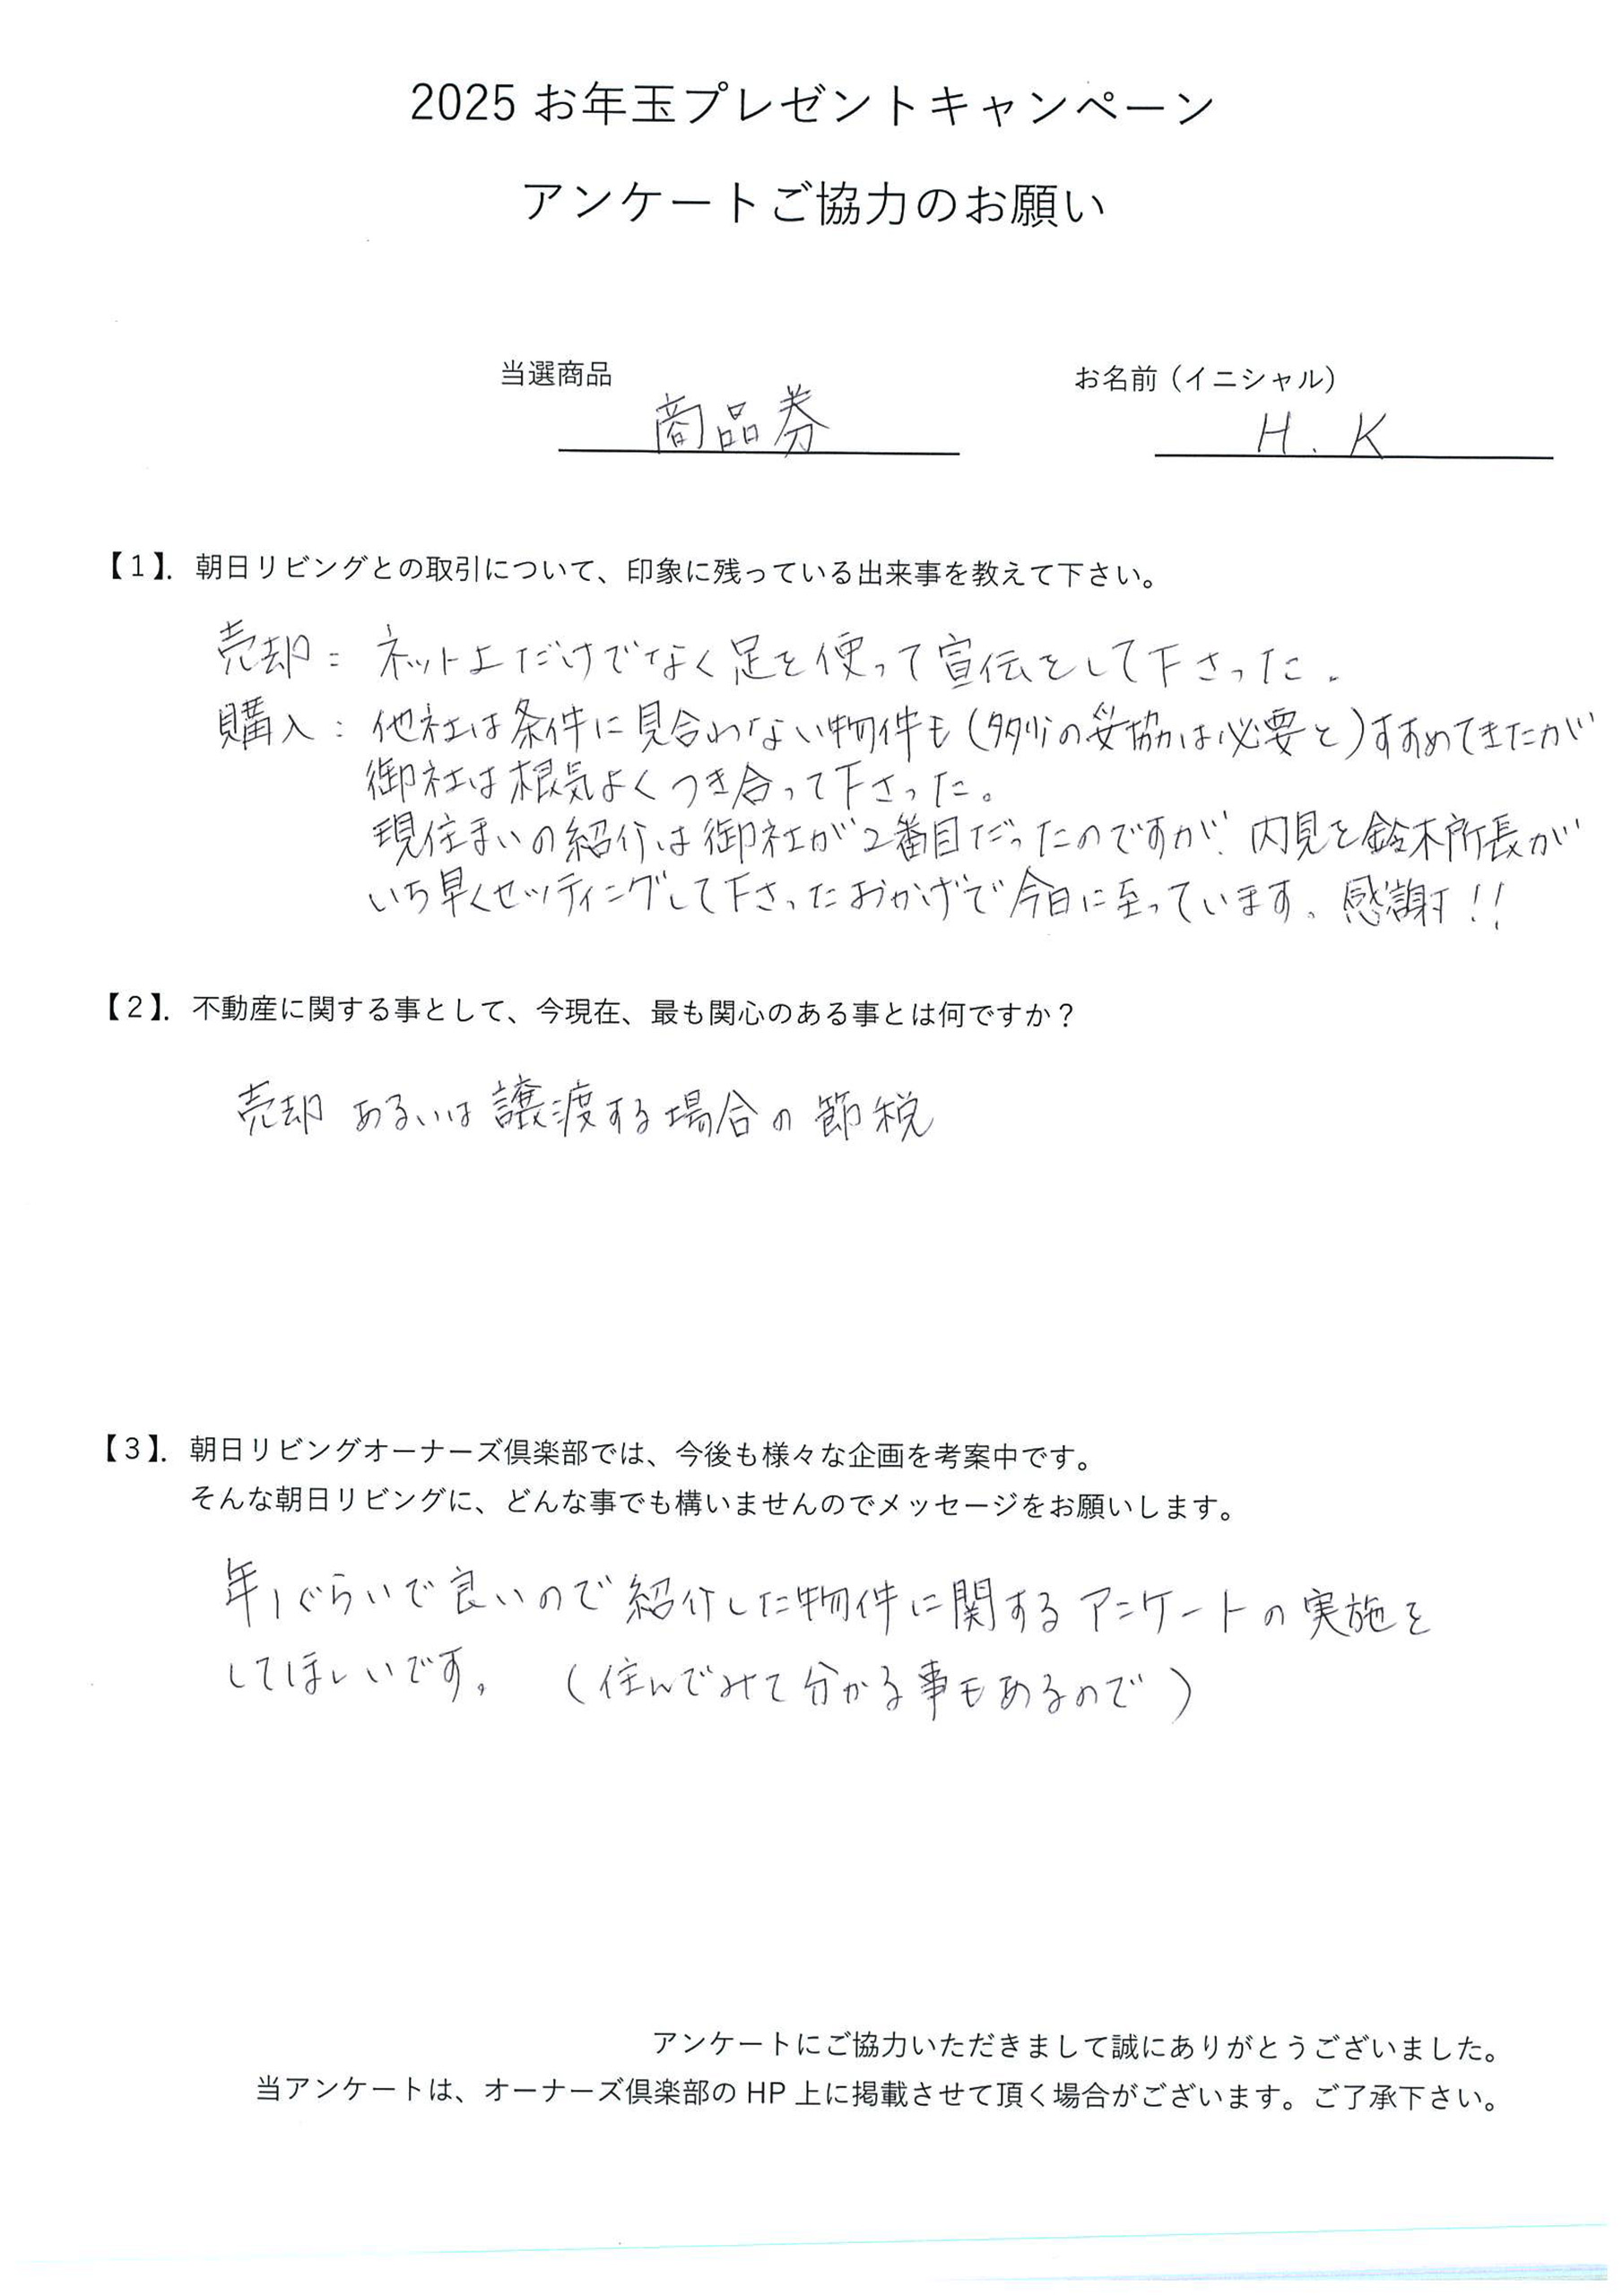 2025 お年玉プレゼントキャンペーン
アンケートご協力のお願い
当選商品
商品券
お名前（イニシャル）
H.K
【1】. 朝日リビングとの取引について、印象に残っている出来事を教えて下さい。
売却： ネット上だけでなく足を使って宣伝をして下さった.
購入： 他社は条件に見合わない物件も（多少の妥協は必要と）すすめてきたが
御社は根気よくつき合って下さった。
現住まいの紹介は御社が2番目だったのですが、内見を鈴木所長が
いち早くセッティングして下さったおかげで今日に至っています。感謝！！
【2】. 不動産に関する事として、今現在、最も関心のある事とは何ですか？
売却 あるいは 譲渡する場合の節税
【3】. 朝日リビングオーナーズ倶楽部では、今後も様々な企画を考案中です。
そんな朝日リビングに、どんな事でも構いませんのでメッセージをお願いします。
年1ぐらいで良いので紹介した物件に関するアンケートの実施を
してほしいです。 （住んでみて分かる事もあるので）
アンケートにご協力いただきまして誠にありがとうございました。
当アンケートは、オーナーズ倶楽部の HP 上に掲載させて頂く場合がございます。ご了承下さい。